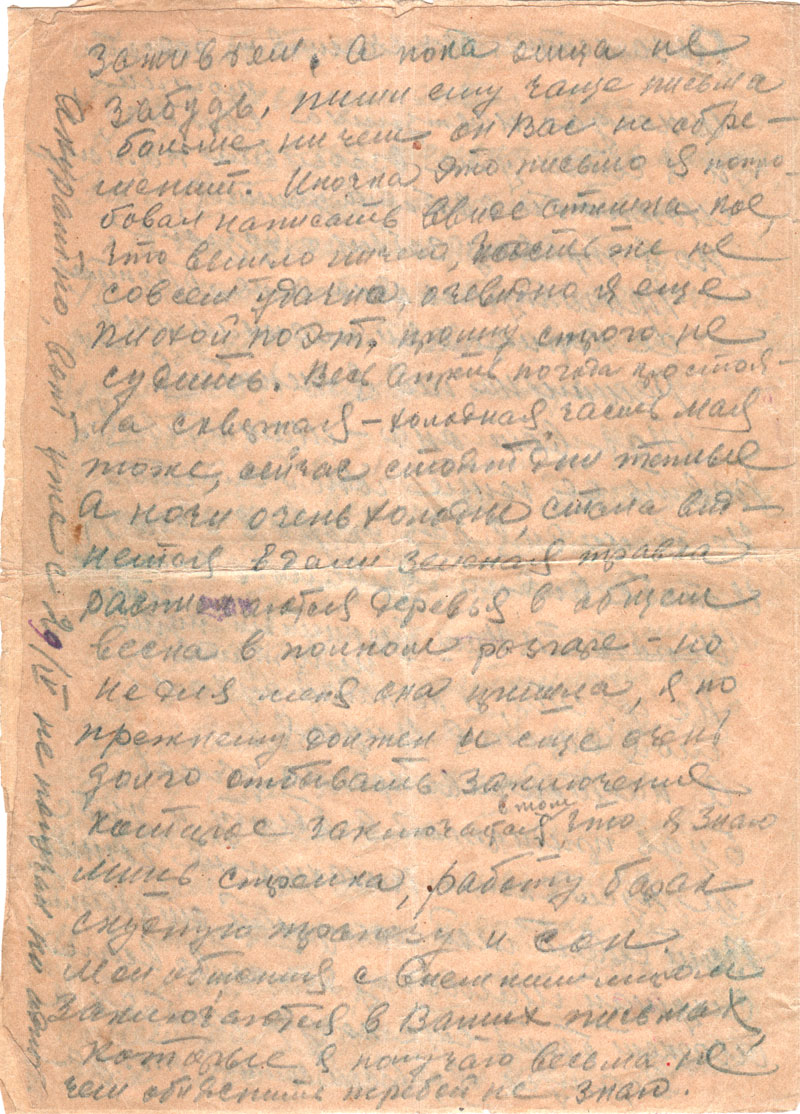 заживем. А пока отца не
забудь, пиши ему чаще письма
больше ничем он Вас не обре-
менит. Иночка это письмо я попро-
бовал написать ввиде стишка кое,
что вышло ничего, часть же не
совсем удачна, очевидно я еще
плохой поэт, прошу строго не
судить. Весь Апрель погода простоя-
ла свежая – холодная, часть мая
тоже, сейчас стоят дни теплые
А ночи очень холодны, стала вид-
нется вдали зеленая травка
распускаются деревья в общем
весна в полном разгаре – но
не для меня она пришла, я по
прежнему должен и еще очень
долго отбывать заключение
которое заключается в том, что я знаю
лишь стрелка, работу, барак
скудную трапезу и сон
Мои общения с внешним миром
Заключаются в Ваших письмах,
которые я получаю весьма не
чем об'яснить перебой не знаю.
Акуратно, вот уже с 29/IV не получал ни одного